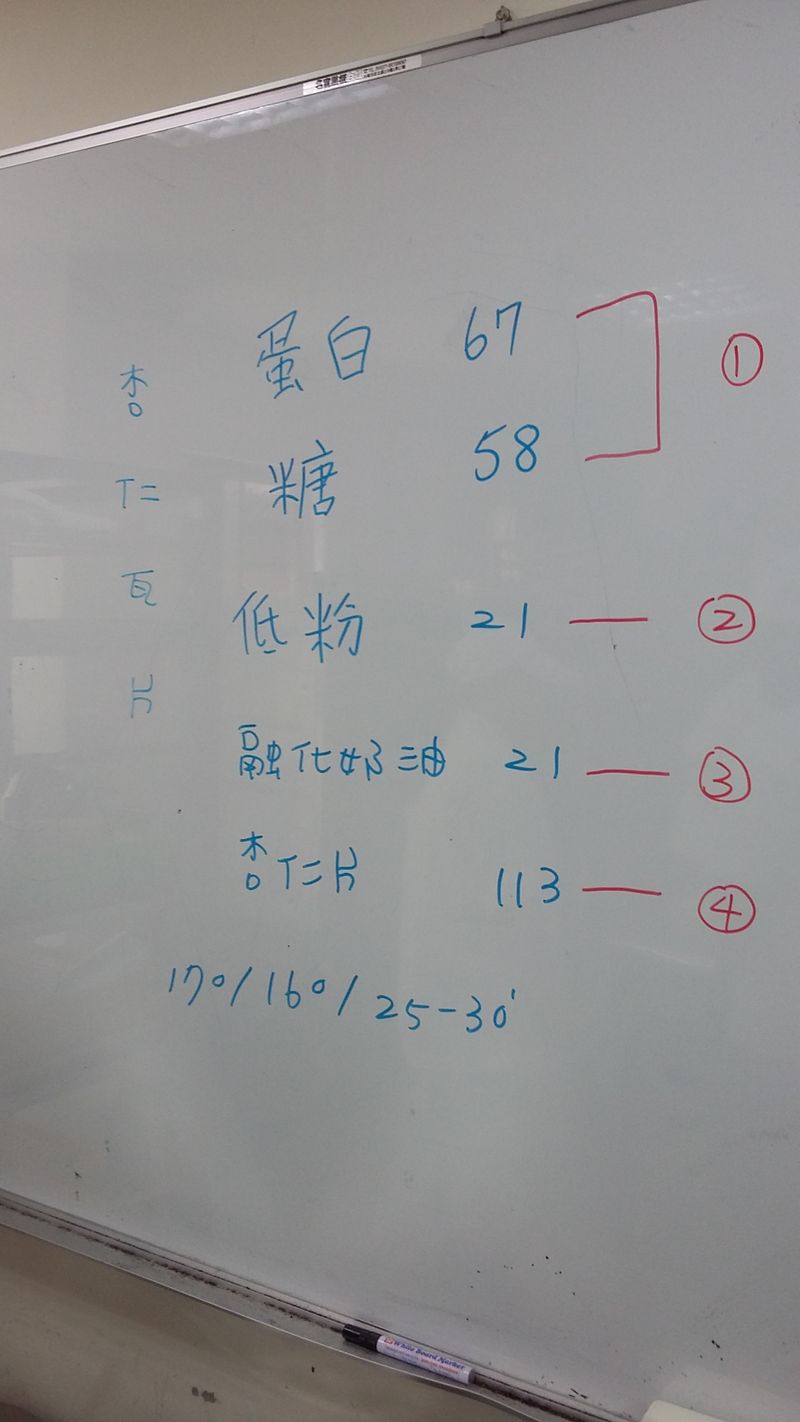 杏
仁
瓦
片
蛋白 67 ①
糖 58
低粉 21 — ②
融化奶油 21 — ③
杏仁片 113 — ④
170/160/25-30'
White Board Marker